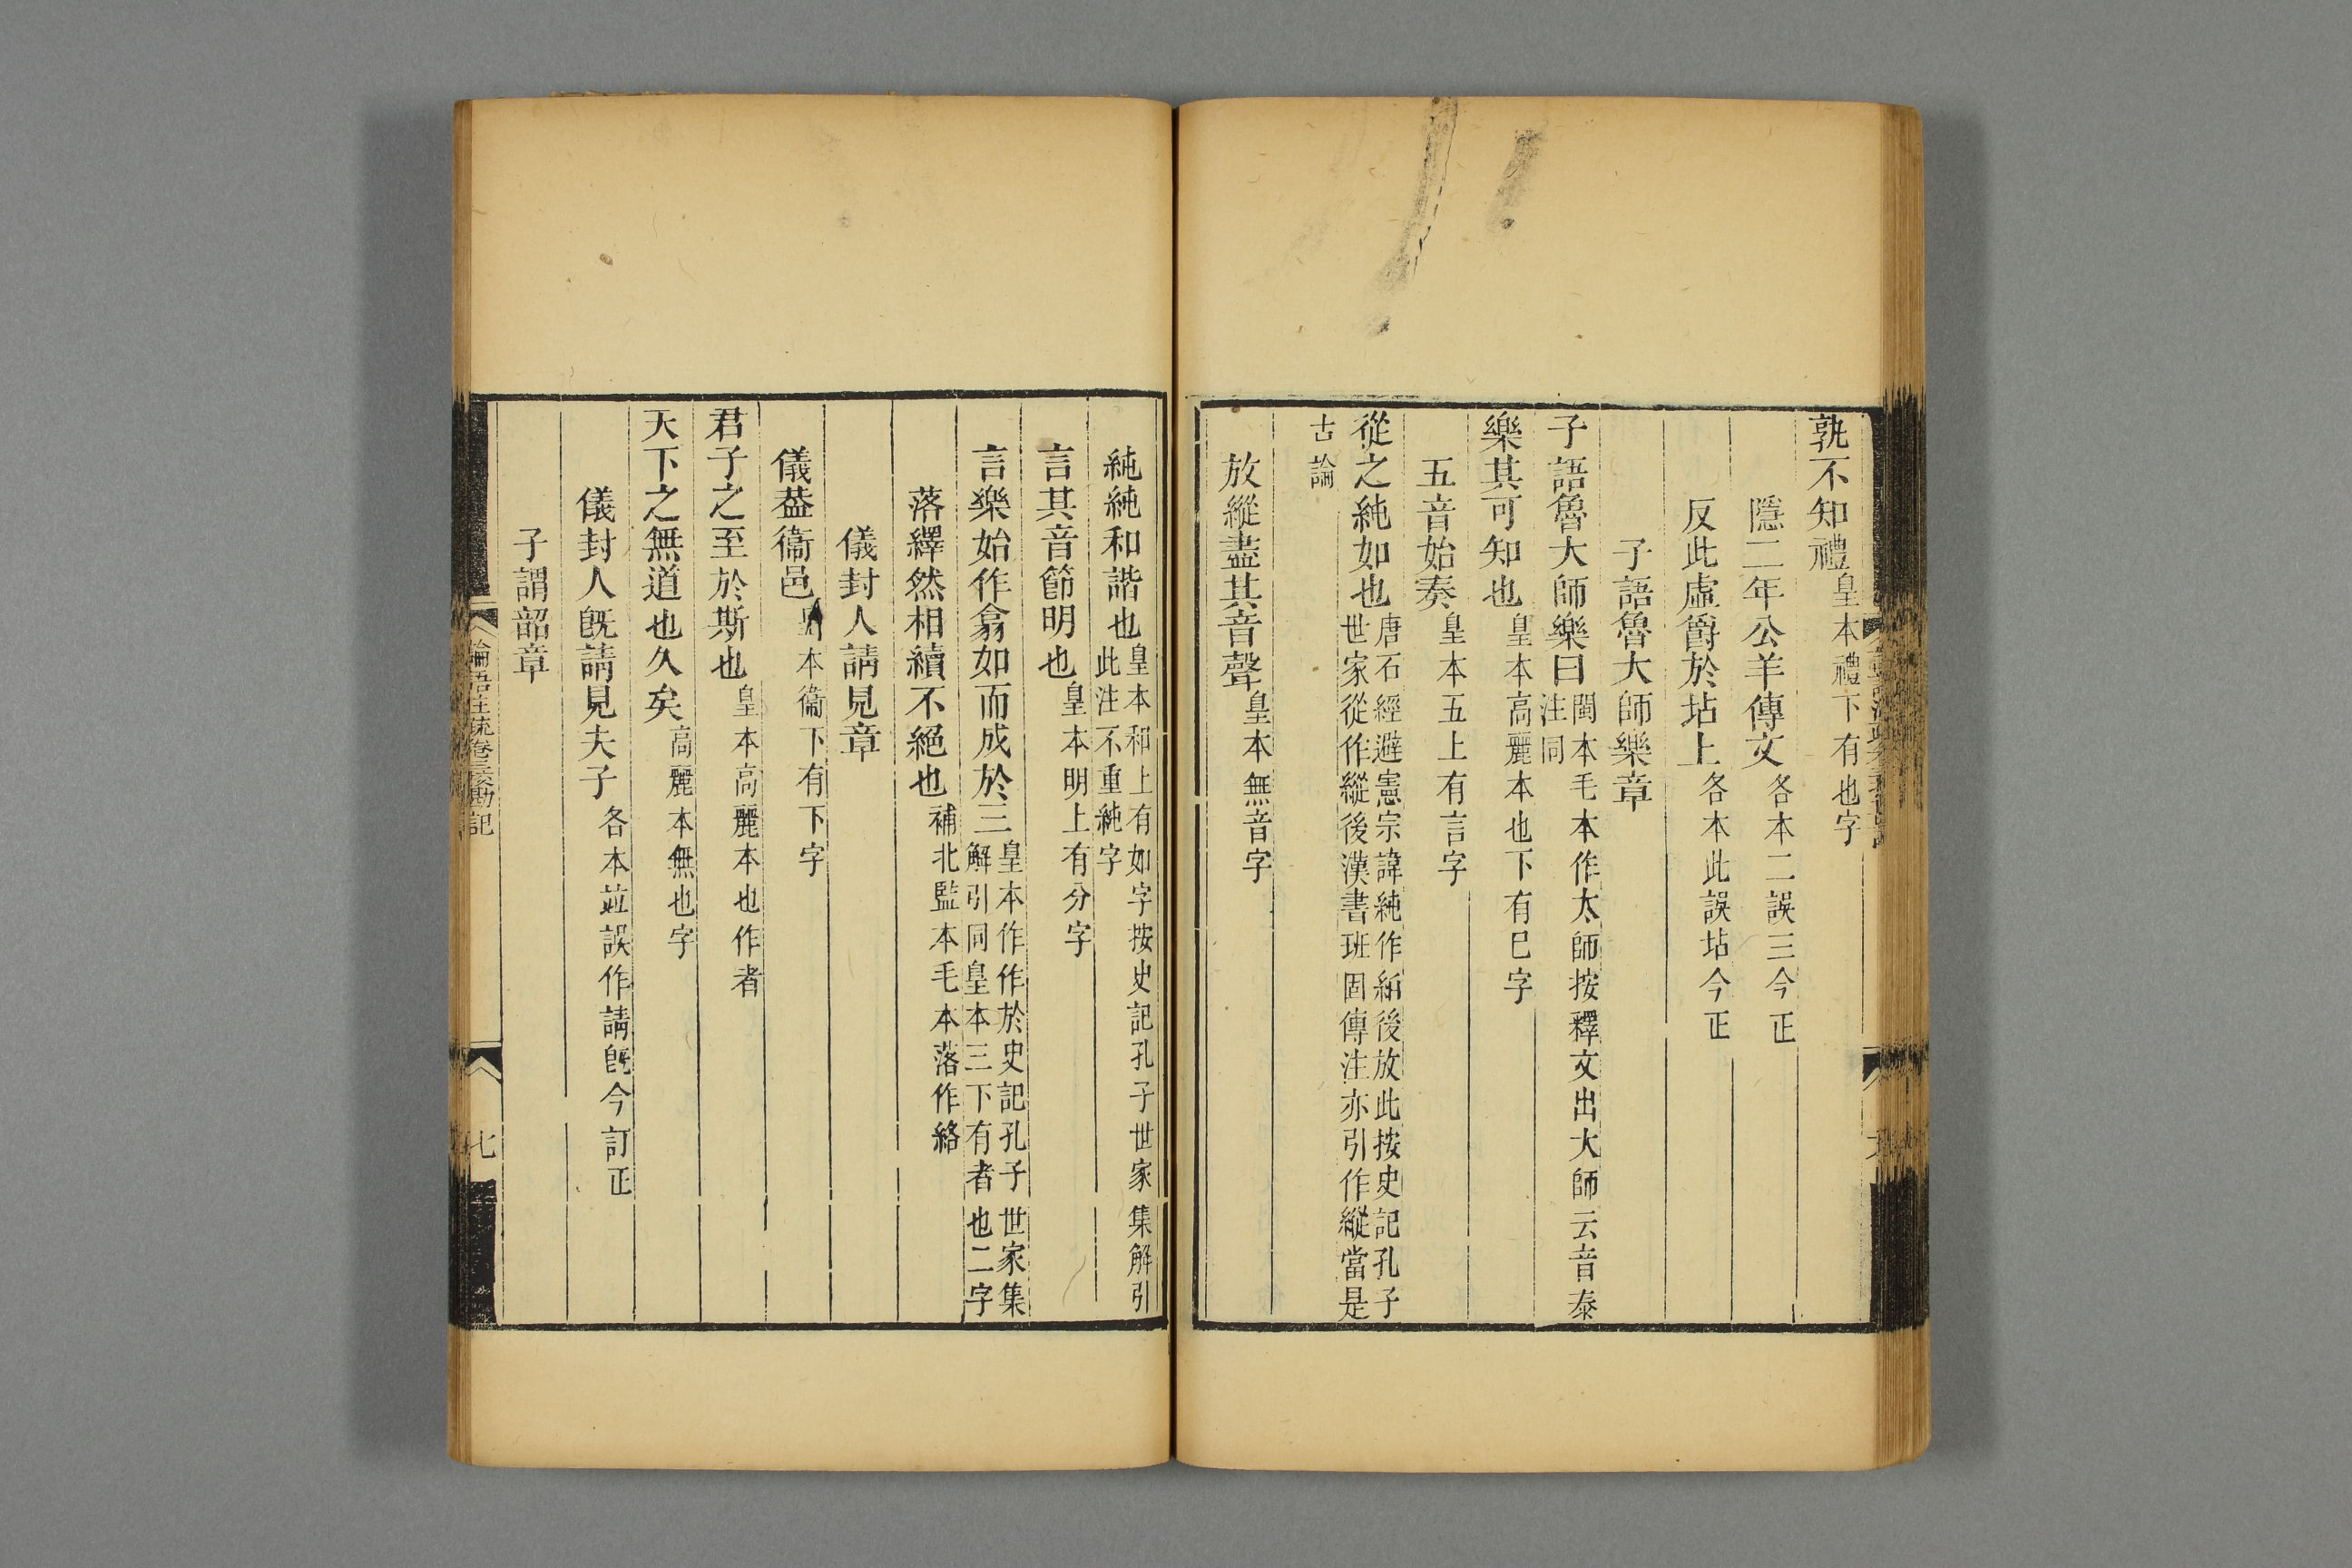 孰不知禮皇本禮下有也字
隱二年公羊傳文各本二誤三今正
反此虛爵於坫上各本此誤坫今正
子語魯大師樂章
子語魯大師樂曰閩本毛本作太師按釋文出大師云音泰注同
樂其可知也皇本高麗本也下有已字
五音始奏皇本五上有言字
從之純如也唐石經避憲宗諱純作絈後放此按史記孔子世家從作縱後漢書班固傳注亦引作縱當是
古論
放縱盡其音聲皇本無音字
純純和諧也皇本和上有如字按史記孔子世家集解引此注不重純字
言其音節明也皇本明上有分字
言樂始作翕如而成於三皇本作作於史記孔子世家集解引同皇本三下有者也二字
落繹然相續不絕也補北監本毛本落作絡
儀封人請見章
儀葢衞邑皇本衞下有下字
君子之至於斯也皇本高麗本也作者
天下之無道也久矣高麗本無也字
儀封人旣請見夫子各本竝誤作請旣今訂正
子謂韶章
論語注疏卷三校勘記
七